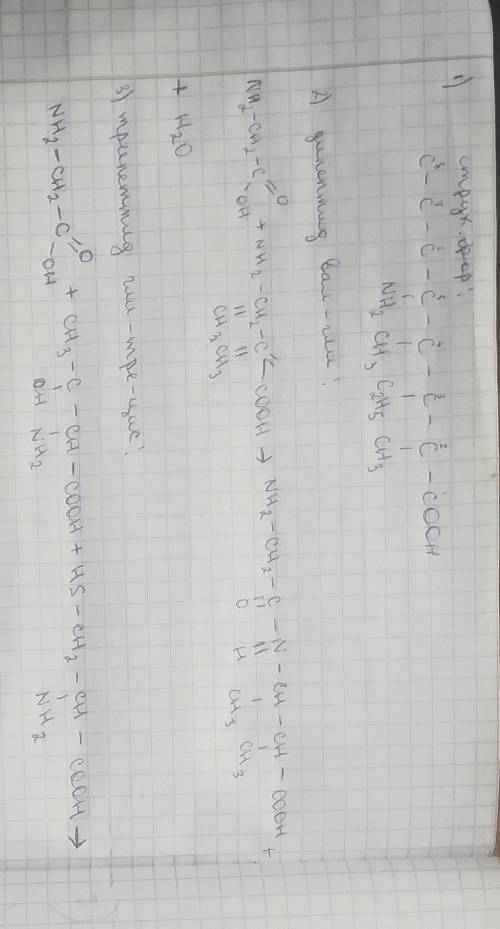 1) струк. фор.:
C⁸ – C⁷ – C⁶ – C⁵ – C⁴ – C³ – C² – COOH
NH₂ CH₃ C₂H₅ CH₃
2) дипептид вал-гли:
NH₂ – CH₂ – C = O
OH
+ NH₂ – CH₂ – C – COOH → NH₂ – CH₂ – C – N – CH – CH – COOH +
CH₃ CH₃ O H CH₃ CH₃
+ H₂O
3) трипептид гли-тре-цис:
NH₂ – CH₂ – C = O
OH
+ CH₃ – C – CH – COOH + HS – CH₂ – CH – COOH →
OH NH₂ NH₂